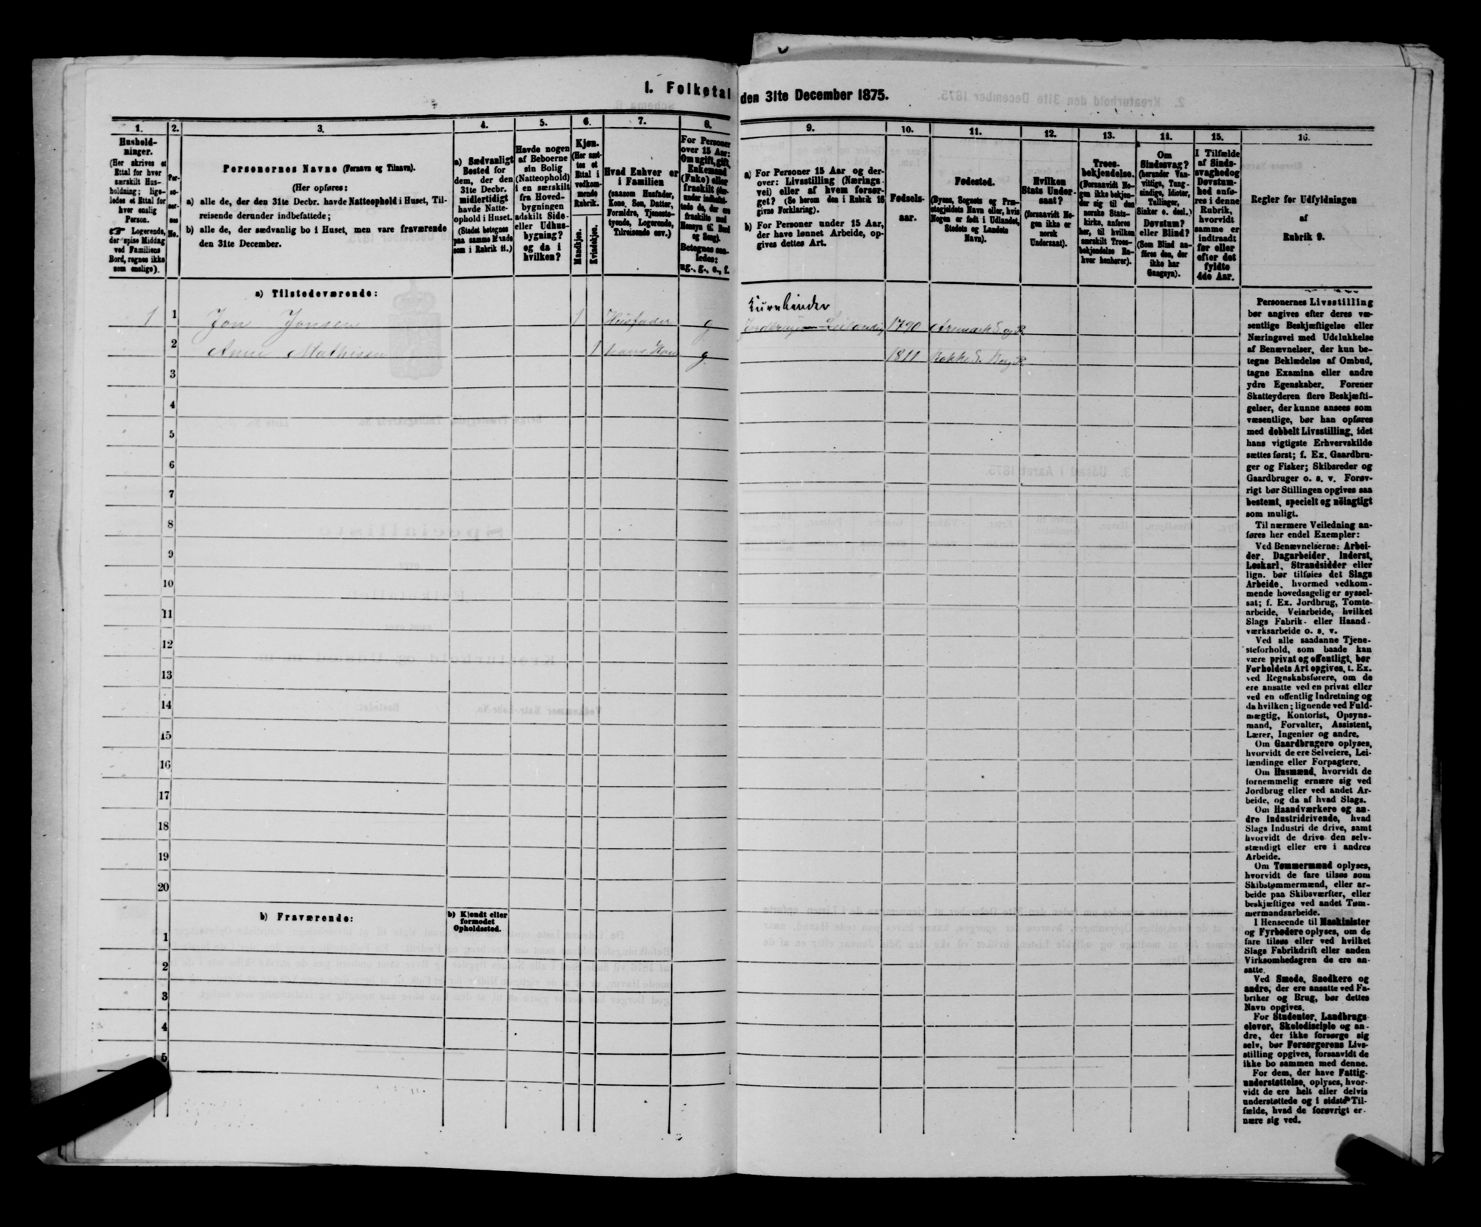 I. Folketal den 31te December 1875.
1.
Hushold-
ninger.
(Her skrives et
Ettal for hver
særskilt Hus-
holdning; lige-
ledes et Ettal for
hver enslig
Person.
☞ Logerende,
der spise Middag
ved Familiens
Bord, regnes ikke
som enslige).
2.
Per-
so-
ner-
nes
No.
3.
Personernes Navne (Fornavn og Tilnavn).
(Her opføres:
a) alle de, der den 31te Decbr. havde Natteophold i Huset, Til-
reisende derunder indbefattede;
b) alle de, der sædvanlig bo i Huset, men vare fraværende
den 31te December.
4.
a) Sædvanligt
Bosted for
dem, der den
31te Decbr.
midlertidigt
havde Natte-
ophold i Huset.
(Stedet betegnes
paa samme Maade
som i Rubrik 11.)
5.
Havde nogen
af Beboerne
sin Bolig
(Natteophold)
i en særskilt
fra Hoved-
bygningen
adskilt Side-
eller Udhus-
bygning?
og da i
hvilken?
6.
Kjøn.
(Her sæt-
tes et
Ettal i
vedkom-
mende
Rubrik.
Mandkjøn.
Kvindekjøn.
7.
Hvad Enhver er
i Familien
(saasom Husfader,
Kone, Søn, Datter,
Forældre, Tjeneste-
tyende, Logerende,
Tilreisende osv.)
8.
For Personer
over 15 Aar:
Om ugift, gift,
Enkemand
(Enke) eller
fraskilt
Betegnes saa-
ledes:
ug., g., e., f.
9.
a) For Personer 15 Aar og der-
over: Livsstilling (Nærings-
vei) eller af hvem forsør-
get? (Se herom den i Rubrik 16
givne Forklaring).
b) For Personer under 15 Aar,
der have lønnet Arbeide, op-
gives dettes Art.
10.
Fødsels-
aar.
11.
Fødested.
(Byens, Sognets og Præ-
stegjeldets Navn eller, hvis
Nogen er født i Udlandet,
Stedets og Landets
Navn).
12.
Hvilken
Stats Under-
saat?
(forsaavidt No-
gen ikke er
norsk
Undersaat).
13.
Troes-
bekjendelse.
(Forsaavidt No-
gen ikke bekjen-
der sig til den
norske Stats-
kirke, anføres
her, til hvilken
særskilt Troes-
bekjendelse En-
hver henhører).
14.
Om
Sindssvag?
(herunder Van-
vittige, Tung-
sindige, Idioter,
Tullinger,
Sinker o. desl.)
Døvstum?
eller Blind?
(Som Blind an-
føres den, der
ikke har
Gangsyn).
15.
I Tilfælde
af Sinds-
svaghed og
Døvstum-
hed anfø-
res i denne
Rubrik,
hvorvidt
samme er
indtraadt
før eller
efter det
fyldte
4de Aar.
16.
Regler for Udfyldningen
af
Rubrik 9.
a) Tilstedeværende:
1 1 Jon Jonsen 1 Husfader g Kurvbinder 1790
2 Anne Mathisen 1 hans Kone g 1811
3
4
5
6
7
8
9
10
11
12
13
14
15
16
17
18
19
20
b) Fraværende:
b) Kjendt eller
formodet
Opholdssted.
1
2
3
4
5
Personernes Livsstilling
bør angives efter deres væ-
sentlige Beskjæftigelse eller
Næringsvei med Udelukkelse
af Benævnelser, der kun be-
tegne Beklædelse af Ombud,
tagne Examina eller andre
ydre Egenskaber. Forener
Skatteyderen flere Beskjæfti-
gelser, der kunne ansees som
væsentlige, bør han opføres
med dobbelt Livsstilling, idet
hans vigtigste Erhvervskilde
sættes først; f. Ex. Gaardbru-
ger og Fisker; Skibsreder og
Gaardbruger o. s. v. Forøv-
rigt bør Stillingen opgives saa
bestemt, specielt og nöiagtigt
som muligt.
Til nærmere Veiledning an-
føres her endel Exempler:
Ved Benævnelserne: Arbei-
der, Dagarbeider, Inderst,
Løskarl, Strandsidder eller
lign. bør tilføies det Slags
Arbeide, hvormed vedkom-
mende hovedsagelig er syssel-
sat; f. Ex. Jordbrug, Tomte-
arbeide, Veiarbeide, hvilket
Slags Fabrik- eller Haand-
værksarbeide o. s. v.
Ved alle saadanne Tjene-
steforhold, som baade kan
være privat og offentligt, bør
Forholdets Art opgives, t. Ex.
ved Regnskabsførere, om de
ere ansatte ved en privat eller
ved en offentlig Indretning og
da hvilken; lignende ved Fuld-
mægtig, Kontorist, Opsyns-
mand, Forvalter, Assistent,
Lærer, Ingeniør og andre.
Om Gaardbrugere oplyses,
hvorvidt de ere Selveiere, Lei-
lændinge eller Forpagtere.
Om Husmænd, hvorvidt de
fornemmelig ernære sig ved
Jordbrug eller ved andet Ar-
beide, og da af hvad Slags.
Om Haandværkere og an-
dre Industridrivende, hvad
Slags Industri de drive, samt
hvorvidt de drive den selv-
stændigt eller ere i andres
Arbeide.
Om Tømmermænd oplyses,
hvorvidt de fare tilsøs som
Skibstømmermænd, eller ar-
beide paa Skibsværfter, eller
beskjæftiges ved andet Tøm-
mermandsarbeide.
I Henseende til Maskinister
og Fyrbødere oplyses, om de
fare tilsøs eller ved hvilket
Slags Fabrikdrift eller anden
Virksomhedsgren de ere an-
satte.
Ved Smede, Snedkere og
andre, der ere ansatte ved Fa-
briker og Brug, bør dettes
Navn opgives.
For Studenter, Landbrugs-
elever, Skoledisciple og an-
dre, der ikke forsørge sig
selv, bør Forsørgerens Livs-
stilling opgives, forsaavidt de
ikke bo sammen med denne.
For dem, der have Fattig-
understøttelse, oplyses, hvor-
vidt de ere helt eller delvis
understøttede og i sidste Til-
fælde, hvad de forøvrigt er-
nære sig ved.